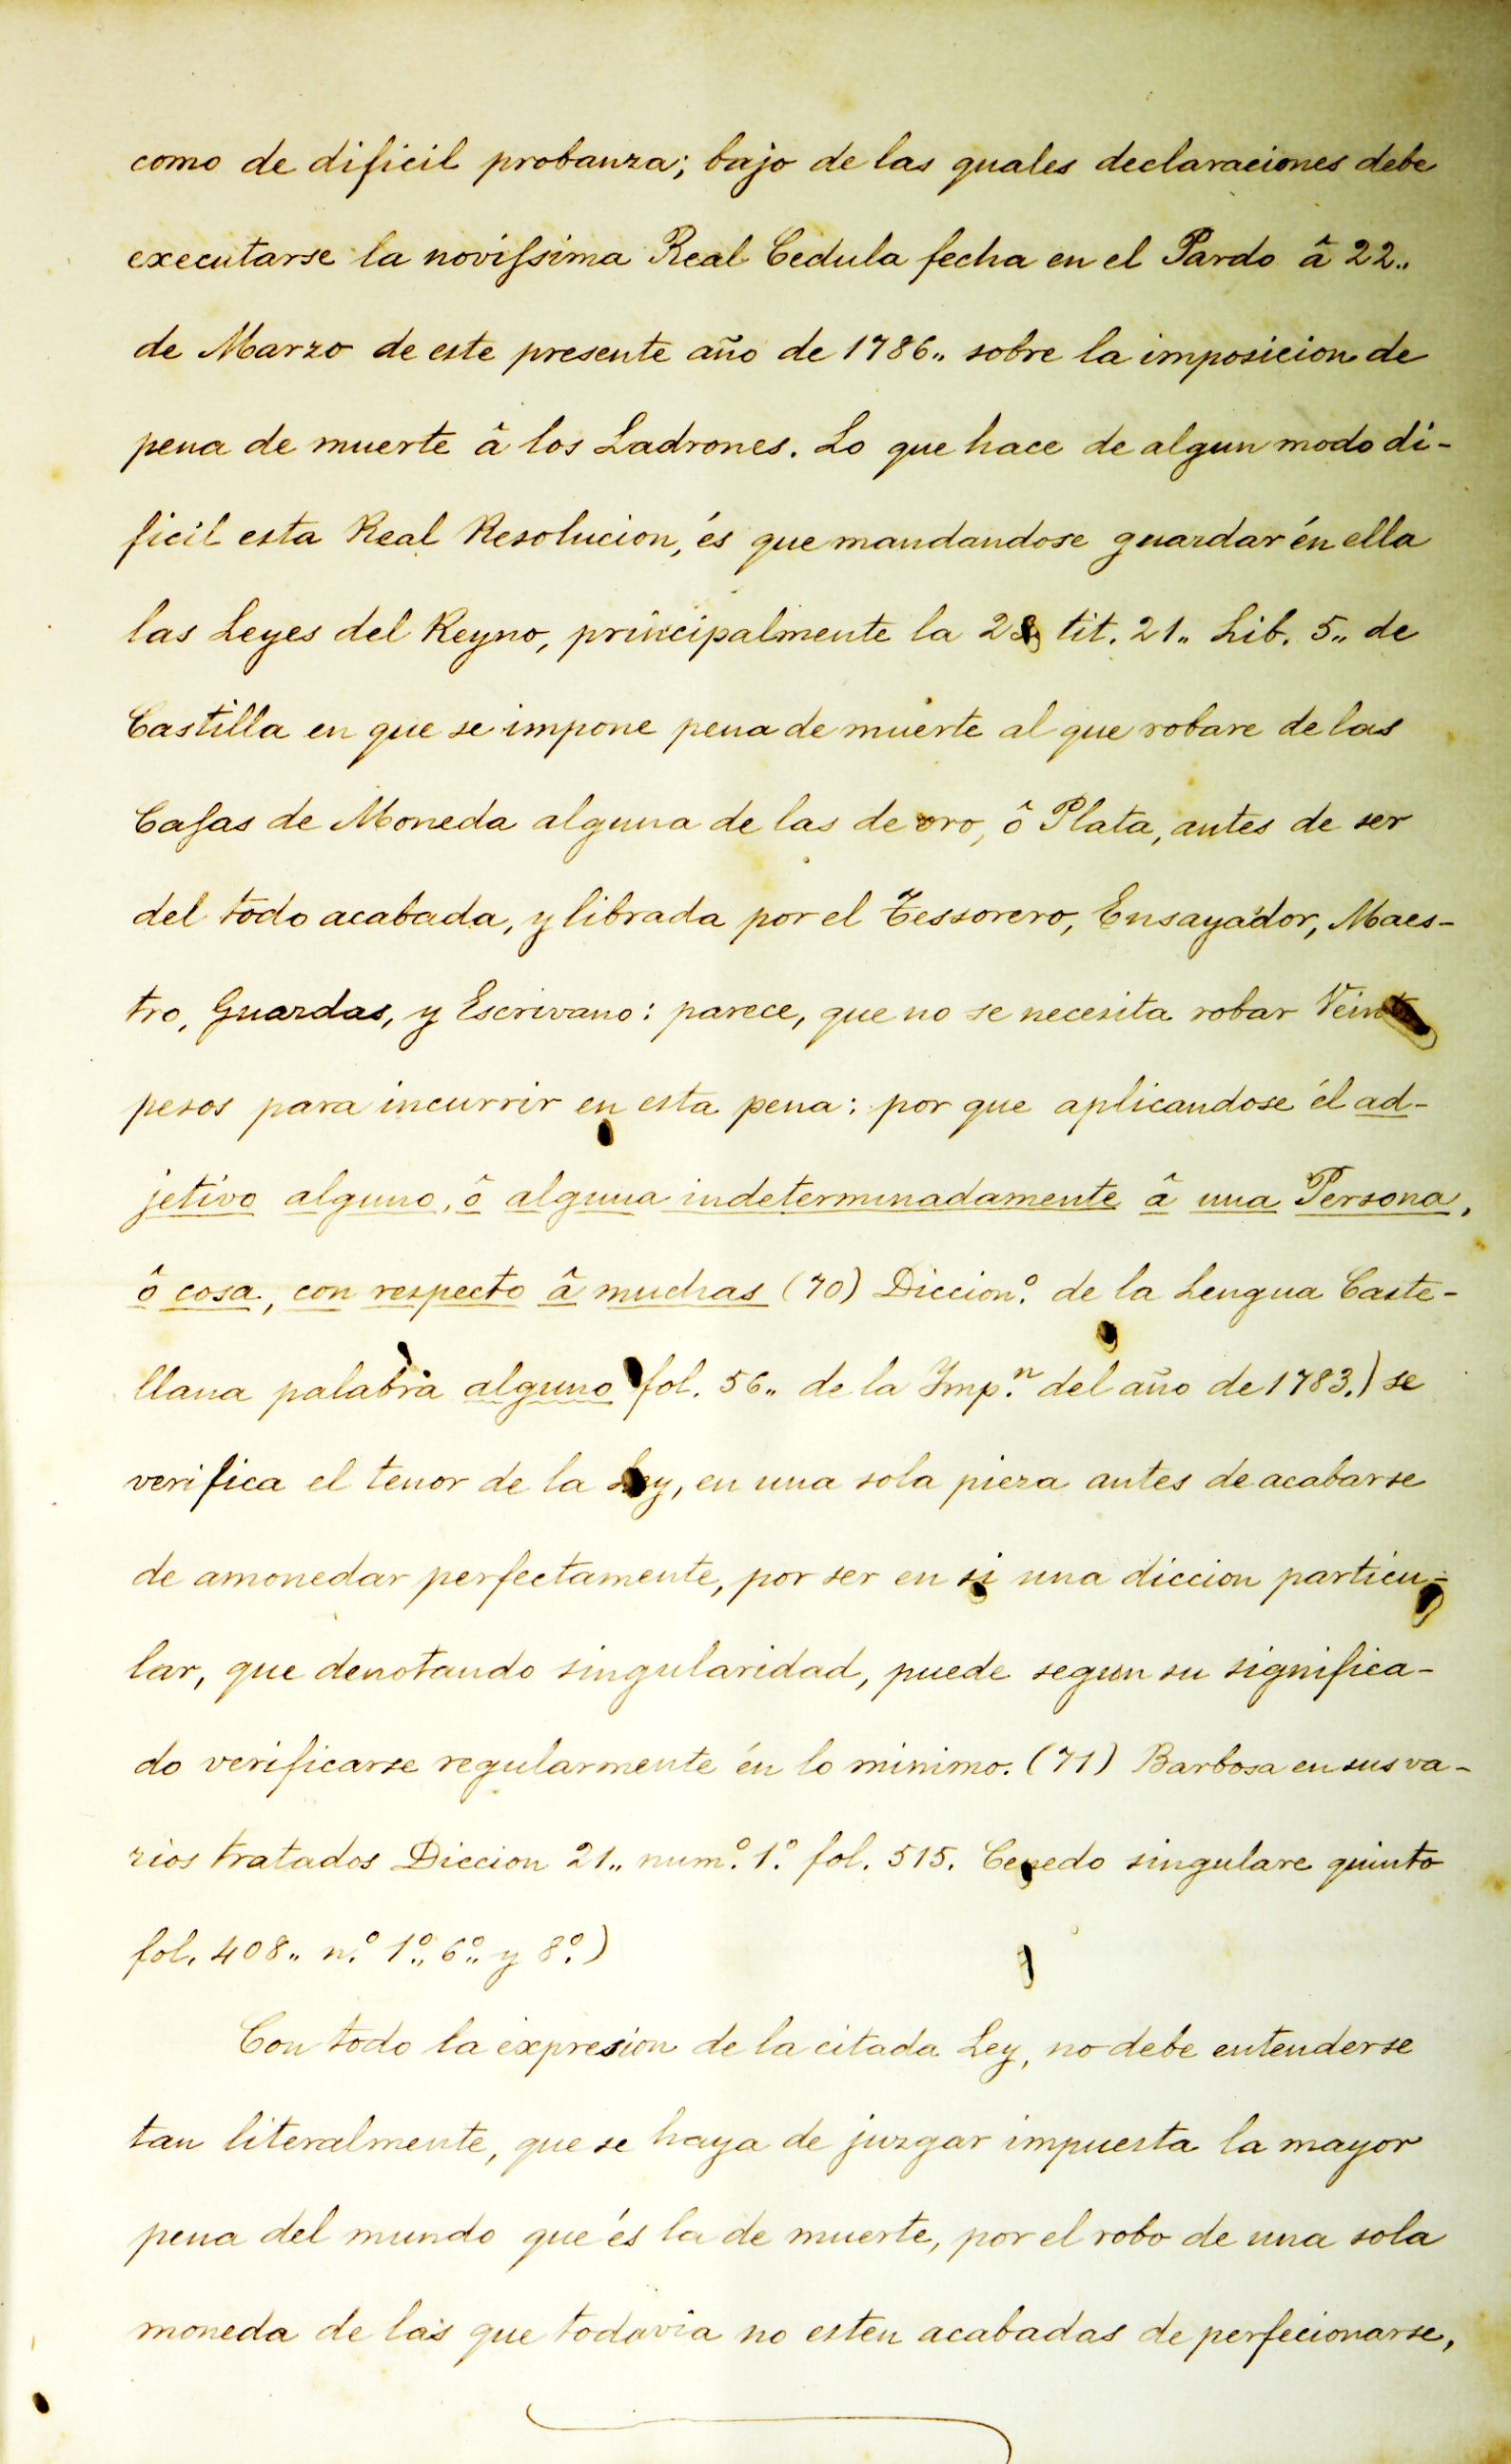 como de dificil probanza; bajo de las quales declaraciones debe
executarse la novifsima Real Cedula fecha en el Pardo â 22,,
de Marzo de este presente año de 1786,, sobre la imposicion de
pena de muerte â los Ladrones. Lo que hace de algun modo di-
ficil esta Real Resolucion, és que mandandose guardar én ella
las Leyes del Reyno, principalmente la tit. 21,, Lib. 5,, de
Castilla en que se impone pena de muerte al que robare de las
Cafas de Moneda alguna de las de oro, ô Plata, antes de ser
del todo acabada, y librada por el Tessorero, Ensayador, Maes-
tro, Guardas, y Escrivano: parece, que no se necesita robar
pesos para incurrir en esta pena: por que aplicandose él ad-
jetivo alguno, ô alguna indeterminadamente â una Persona,
ô cosa, con respecto â muchas (70) Diccion.º de la Lengua Caste-
llana palabra alguno fol. 56,, de la Ymp.n del año de 1783.) se
verifica el tenor de la Ley, en una sola pieza antes de acabarse
de amonedar perfectamente, por ser en si una diccion particu-
lar, que denotando singularidad, puede segun su significa-
do verificarse regularmente én lo minimo. (71) Barbosa en sus va-
rios tratados Diccion 21,, num.º 1.º fol. 515. Cenedo singulare quinto
fol. 408,, n.º 1º,, 6º,, y 8º.)
Con todo la expresion de la citada Ley, no debe entenderse
tan literalmente, que se haya de juzgar impuesta la mayor
pena del mundo que és la de muerte, por el robo de una sola
moneda de las que todavia no esten acabadas de perfecionarse,